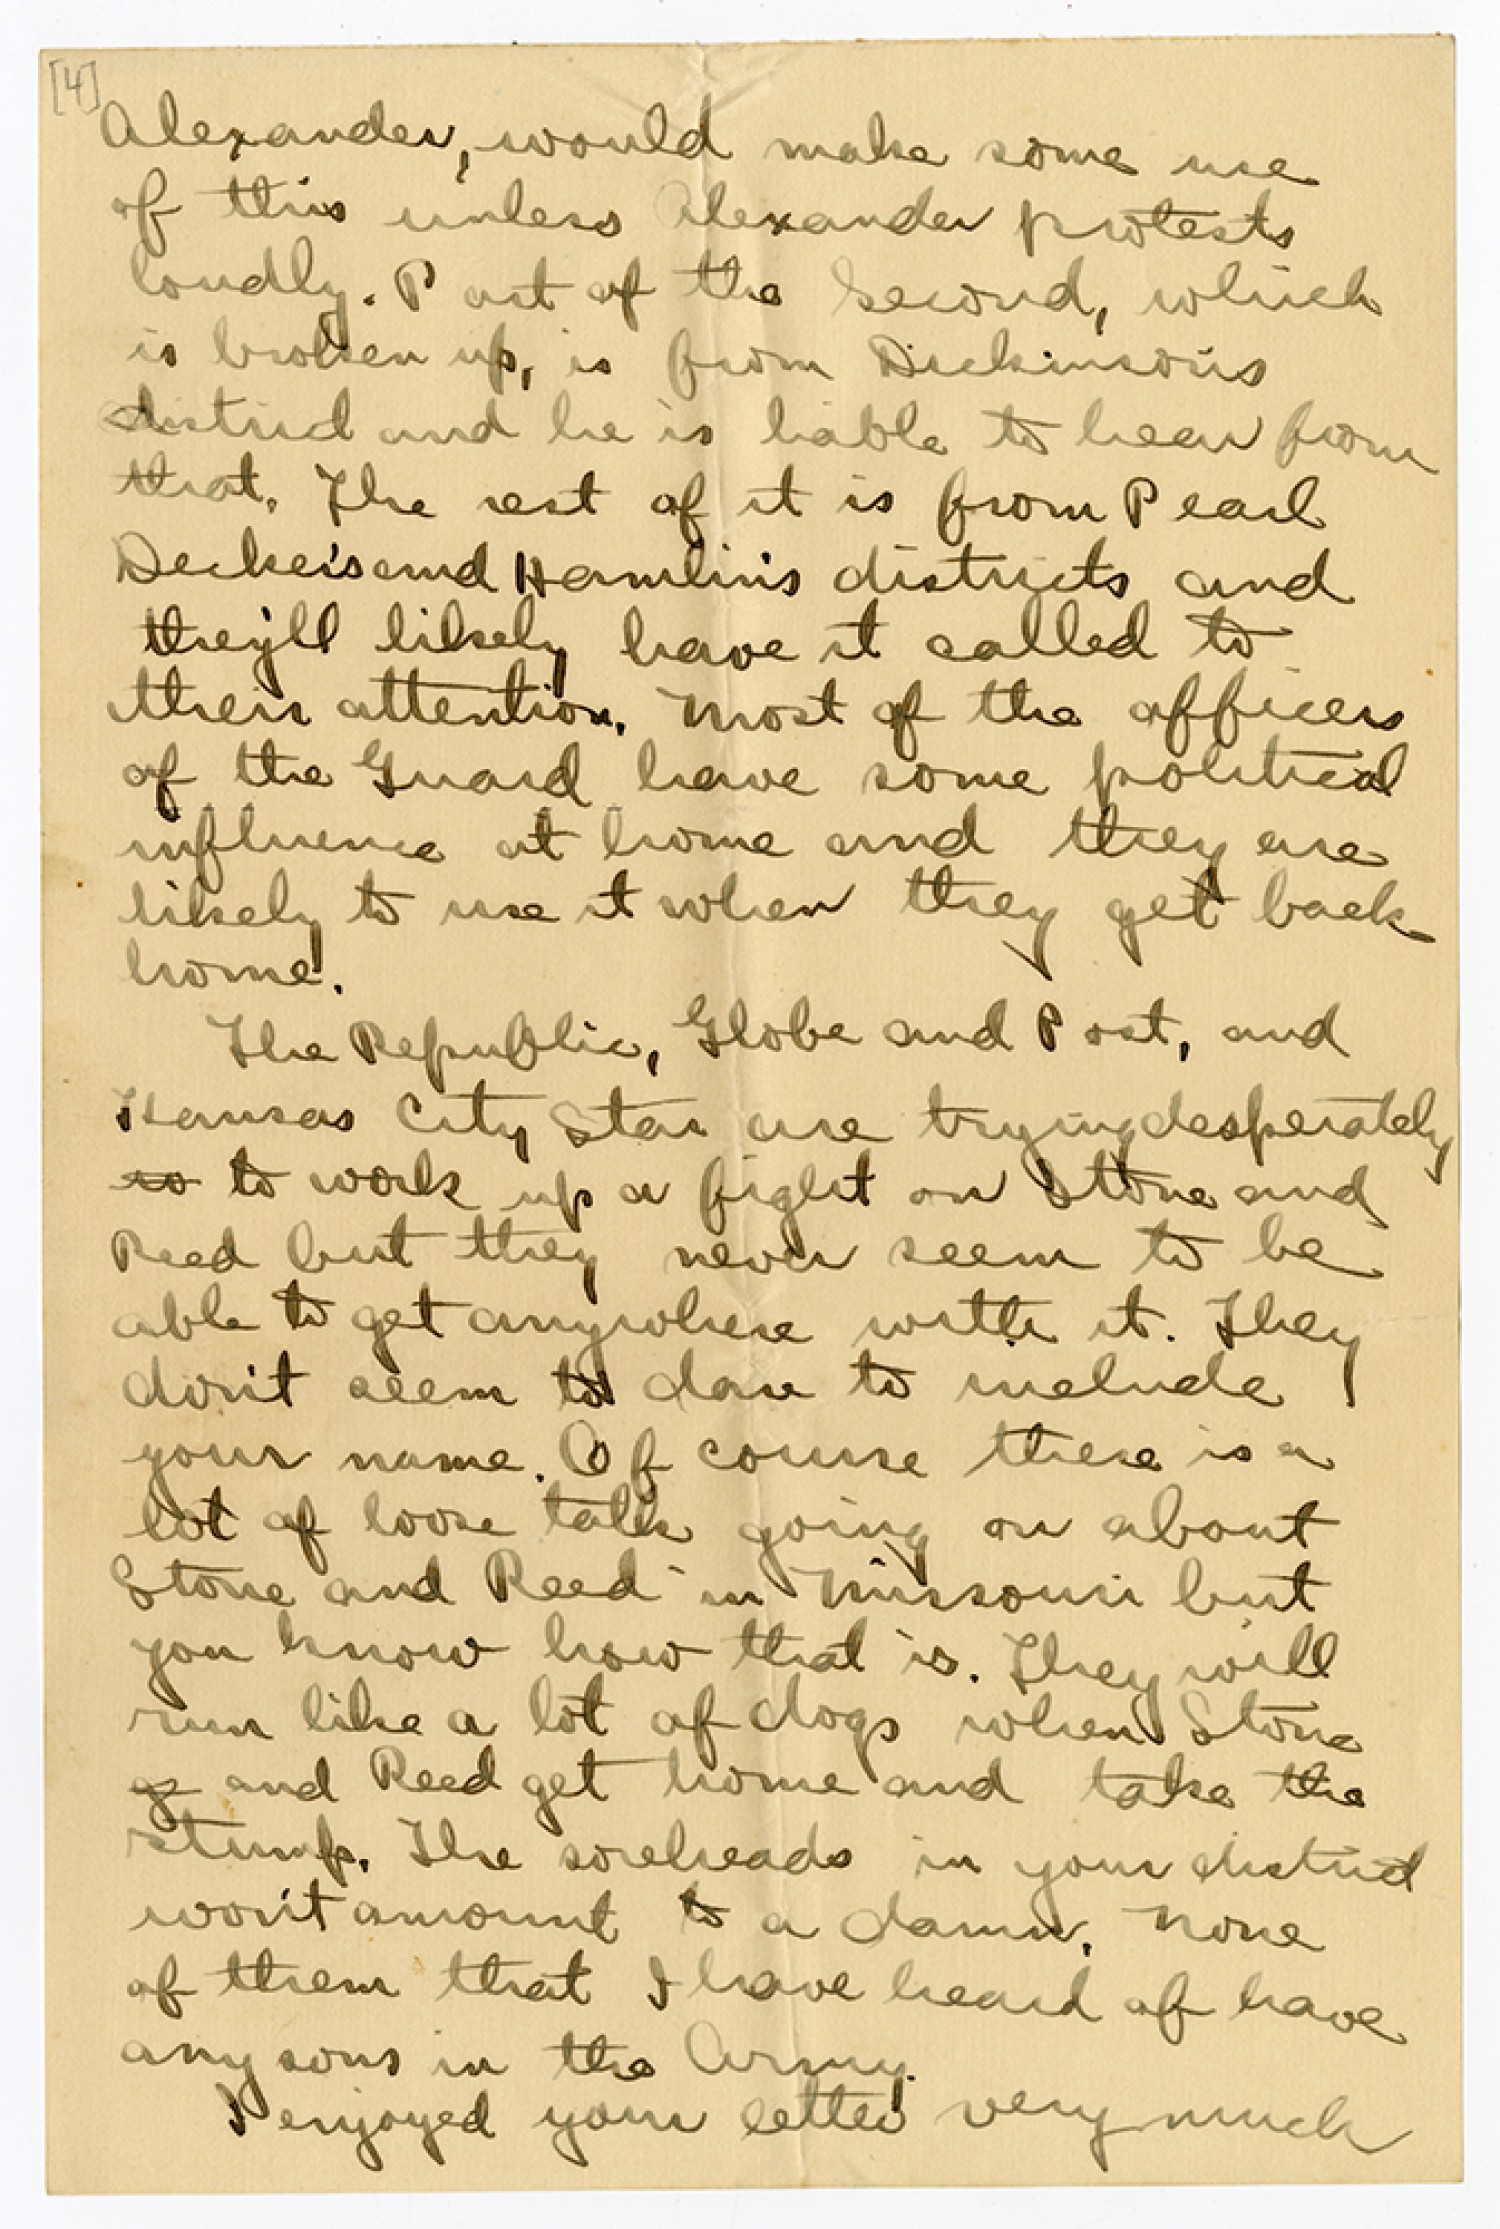 [4]
Alexander, would make some use
of this unless Alexander protests
loudly. Part of the Second, which
is broken up, is from Dickinson's
district and he is liable to hear from
that. The rest of it is from Pearl
Decker's and Hamlin's districts and
they'll likely have it called to
their attention. Most of the officers
of the Guard have some political
influence at home and they are
likely to use it when they get back
home.
The Republic, Globe and Post, and
Kansas City Star are trying desperately
so to work up a fight on Stone and
Reed but they never seem to be
able to get anywhere with it. They
don't seem to dare to include
your name. Of course there is a
lot of loose talk going on about
Stone and Reed in Missouri but
you know how that is. They will
run like a lot of dogs when Stone
g and Reed get home and take the
stump. The soreheads in your district
won't amount to a damn. None
of them that I have heard of have
any sons in the Army.
I enjoyed your letter very much